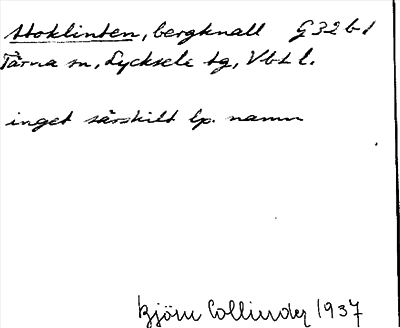 Stoklinten, bergknall G32b1
Tärna sn, Lycksele tg, Vbtl l.
inget särskilt lp. namn
Björn Collinder 1937